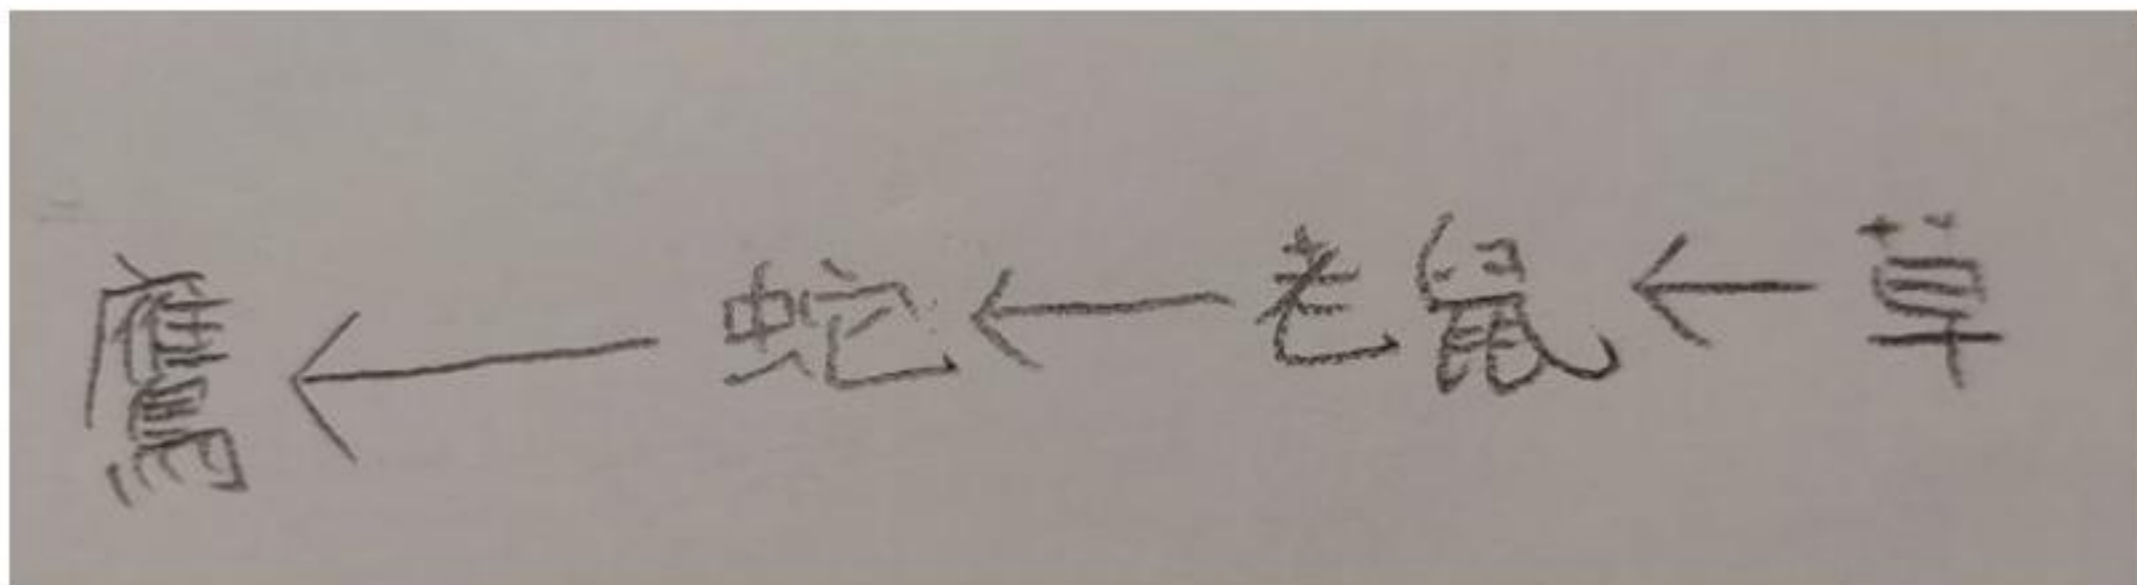 鷹 ← 蛇 ← 老鼠 ← 草